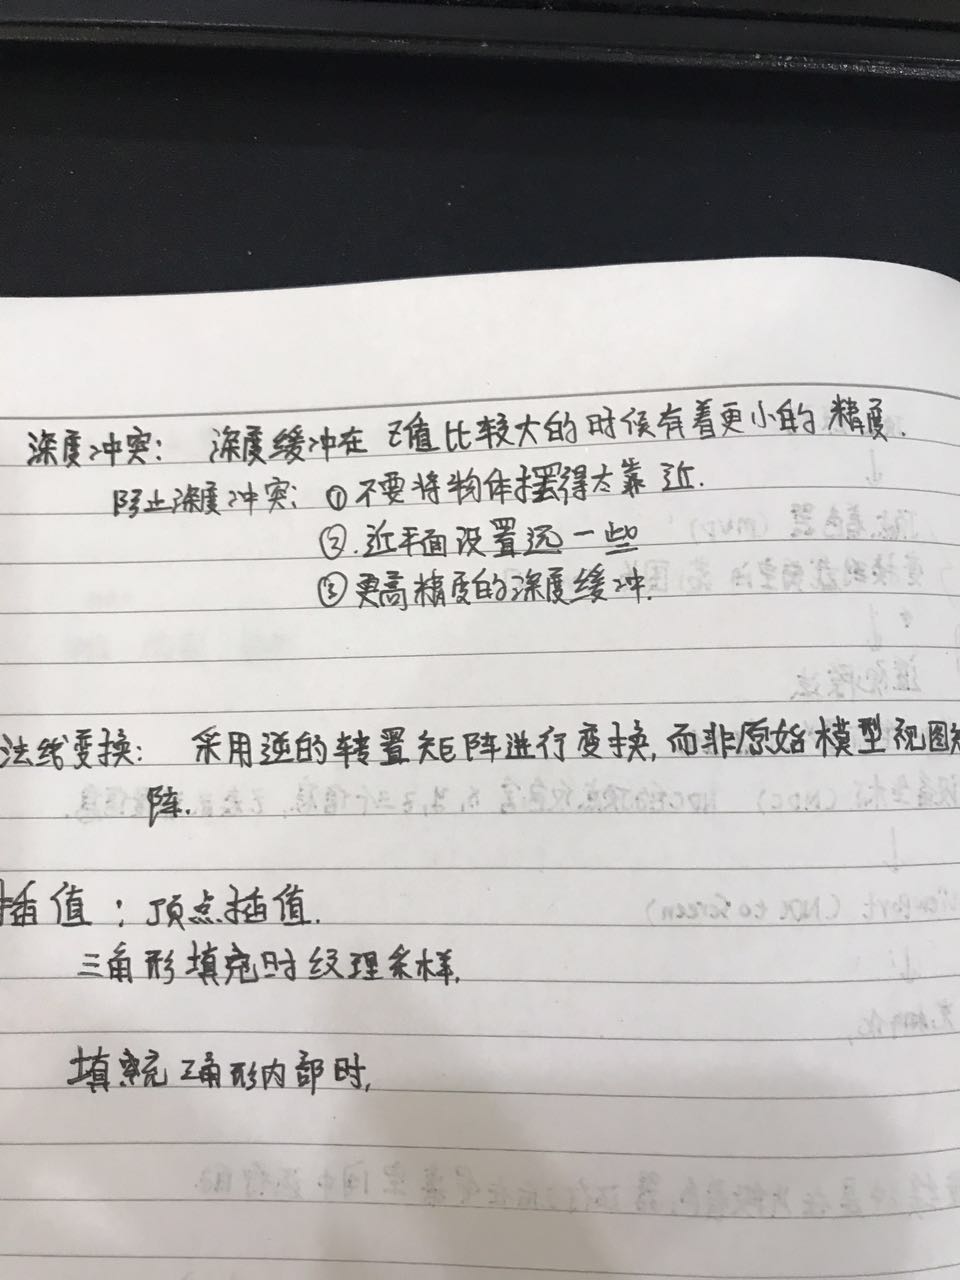 深度冲突: 深度缓冲在 Z值比较大的时候有着更小的精度.
防止深度冲突: ① 不要将物体摆得太靠近.
②. 近平面设置远一些
③ 更高精度的深度缓冲.
法线变换: 采用逆的转置矩阵进行变换, 而非原始模型视图矩
阵.
插值: 顶点插值.
三角形填充时纹理采样.
填充三角形内部时,